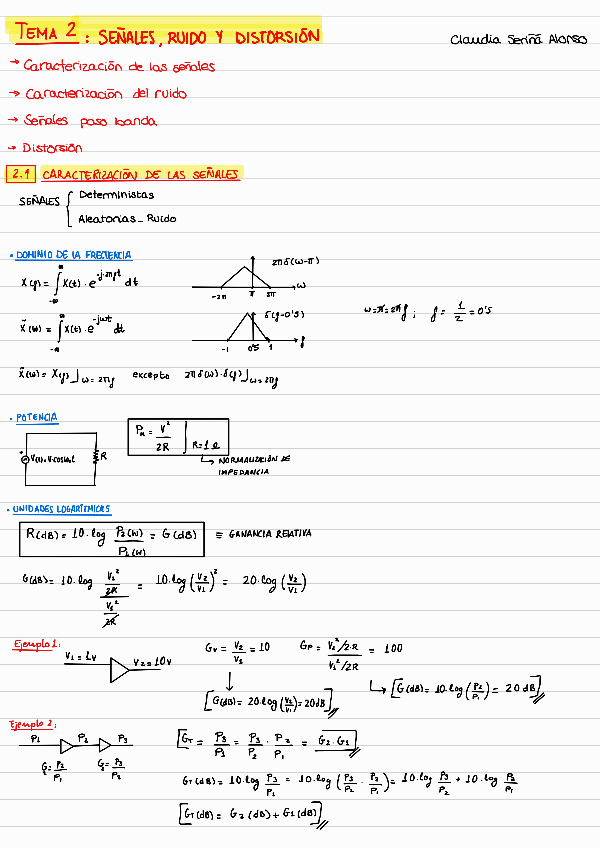 TEMA 2 : SEÑALES, RUIDO Y DISTORSIÓN
Claudia Seriñá Alonso
→ Caracterización de las señales
→ Caracterización del ruido
→ Señales paso banda
→ Distorsión
2.1 CARACTERIZACIÓN DE LAS SEÑALES
SEÑALES { Deterministas
Aleatorias_ Ruido
• DOMINIO DE LA FRECUENCIA
X(f) = ∫_{-∞}^{∞} X(t) · e^{-j·2πft} dt
2πδ(ω-π)
-2π π 2π ω
X̃(ω) = ∫_{-∞}^{∞} X(t) · e^{-jωt} dt
δ(f-0'5)
-1 0'5 1 f
ω=π=2πf ; f = 1/2 = 0'5
X̃(ω) = X(f)⌋ω=2πf excepto 2πδ(ω)·δ(f)⌋ω=2πf
• POTENCIA
V(t)=V·cosω₀t R
P_R = V²/2R | R=1Ω
↳ NORMALIZACIÓN DE
IMPEDANCIA
• UNIDADES LOGARÍTMICAS
R(dB) = 10·log P₂(W)/P₁(W) = G(dB) ≡ GANANCIA RELATIVA
G(dB) = 10·log (V₂²/2R)/(V₁²/2R) = 10·log(V₂/V₁)² = 20·log(V₂/V₁)
Ejemplo 1:
V₁=1V V₂=10V
Gv = V₂/V₁ = 10 Gp = (V₂²/2·R)/(V₁²/2R) = 100
[G(dB) = 20·log(V₂/V₁) = 20dB] ↳ [G(dB) = 10·log(P₂/P₁) = 20dB]
Ejemplo 2:
P₁ P₂ P₃
G₁=P₂/P₁ G₂=P₃/P₂
[G_T = P₃/P₁ = P₃/P₂ · P₂/P₁ = G₂·G₁]
G_T(dB) = 10·log P₃/P₁ = 10·log (P₃/P₂ · P₂/P₁) = 10·log P₃/P₂ + 10·log P₂/P₁
[G_T(dB) = G₂(dB) + G₁(dB)]